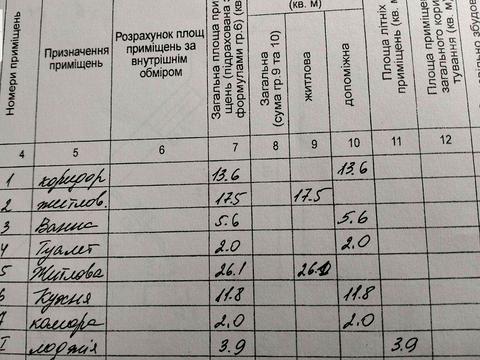 (кв. м)
Номери приміщень
Призначення приміщень
Розрахунок площ приміщень за внутрішнім обміром
Загальна площа при
щень (підрахована з
формулами гр.6) (кв
Загальна
(сума гр.9 та 10)
житлова
допоміжна
Площа літніх
приміщень (кв. м
Площа приміщен
загального кори
тування (кв. м)
4 5 6 7 8 9 10 11 12
1 коридор 13.6 13.6
2 житлов. 17.5 17.5
3 Ванна 5.6 5.6
4 Туалет 2.0 2.0
5 Житлова 26.1 26.1
6 Кухня 11.8 11.8
7 комора 2.0 2.0
I лоджія 3.9 3.9